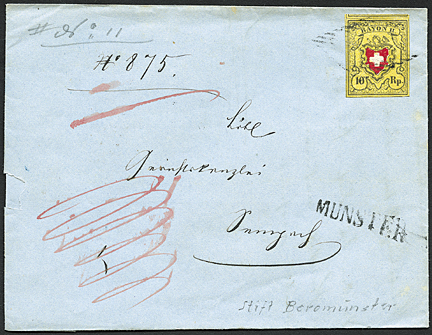 No. 11
No. 875.
RAYON II.
10 Rp.
Löbl
Gerichtskanzlei
Sempach
MÜNSTER
Stift Beromünster